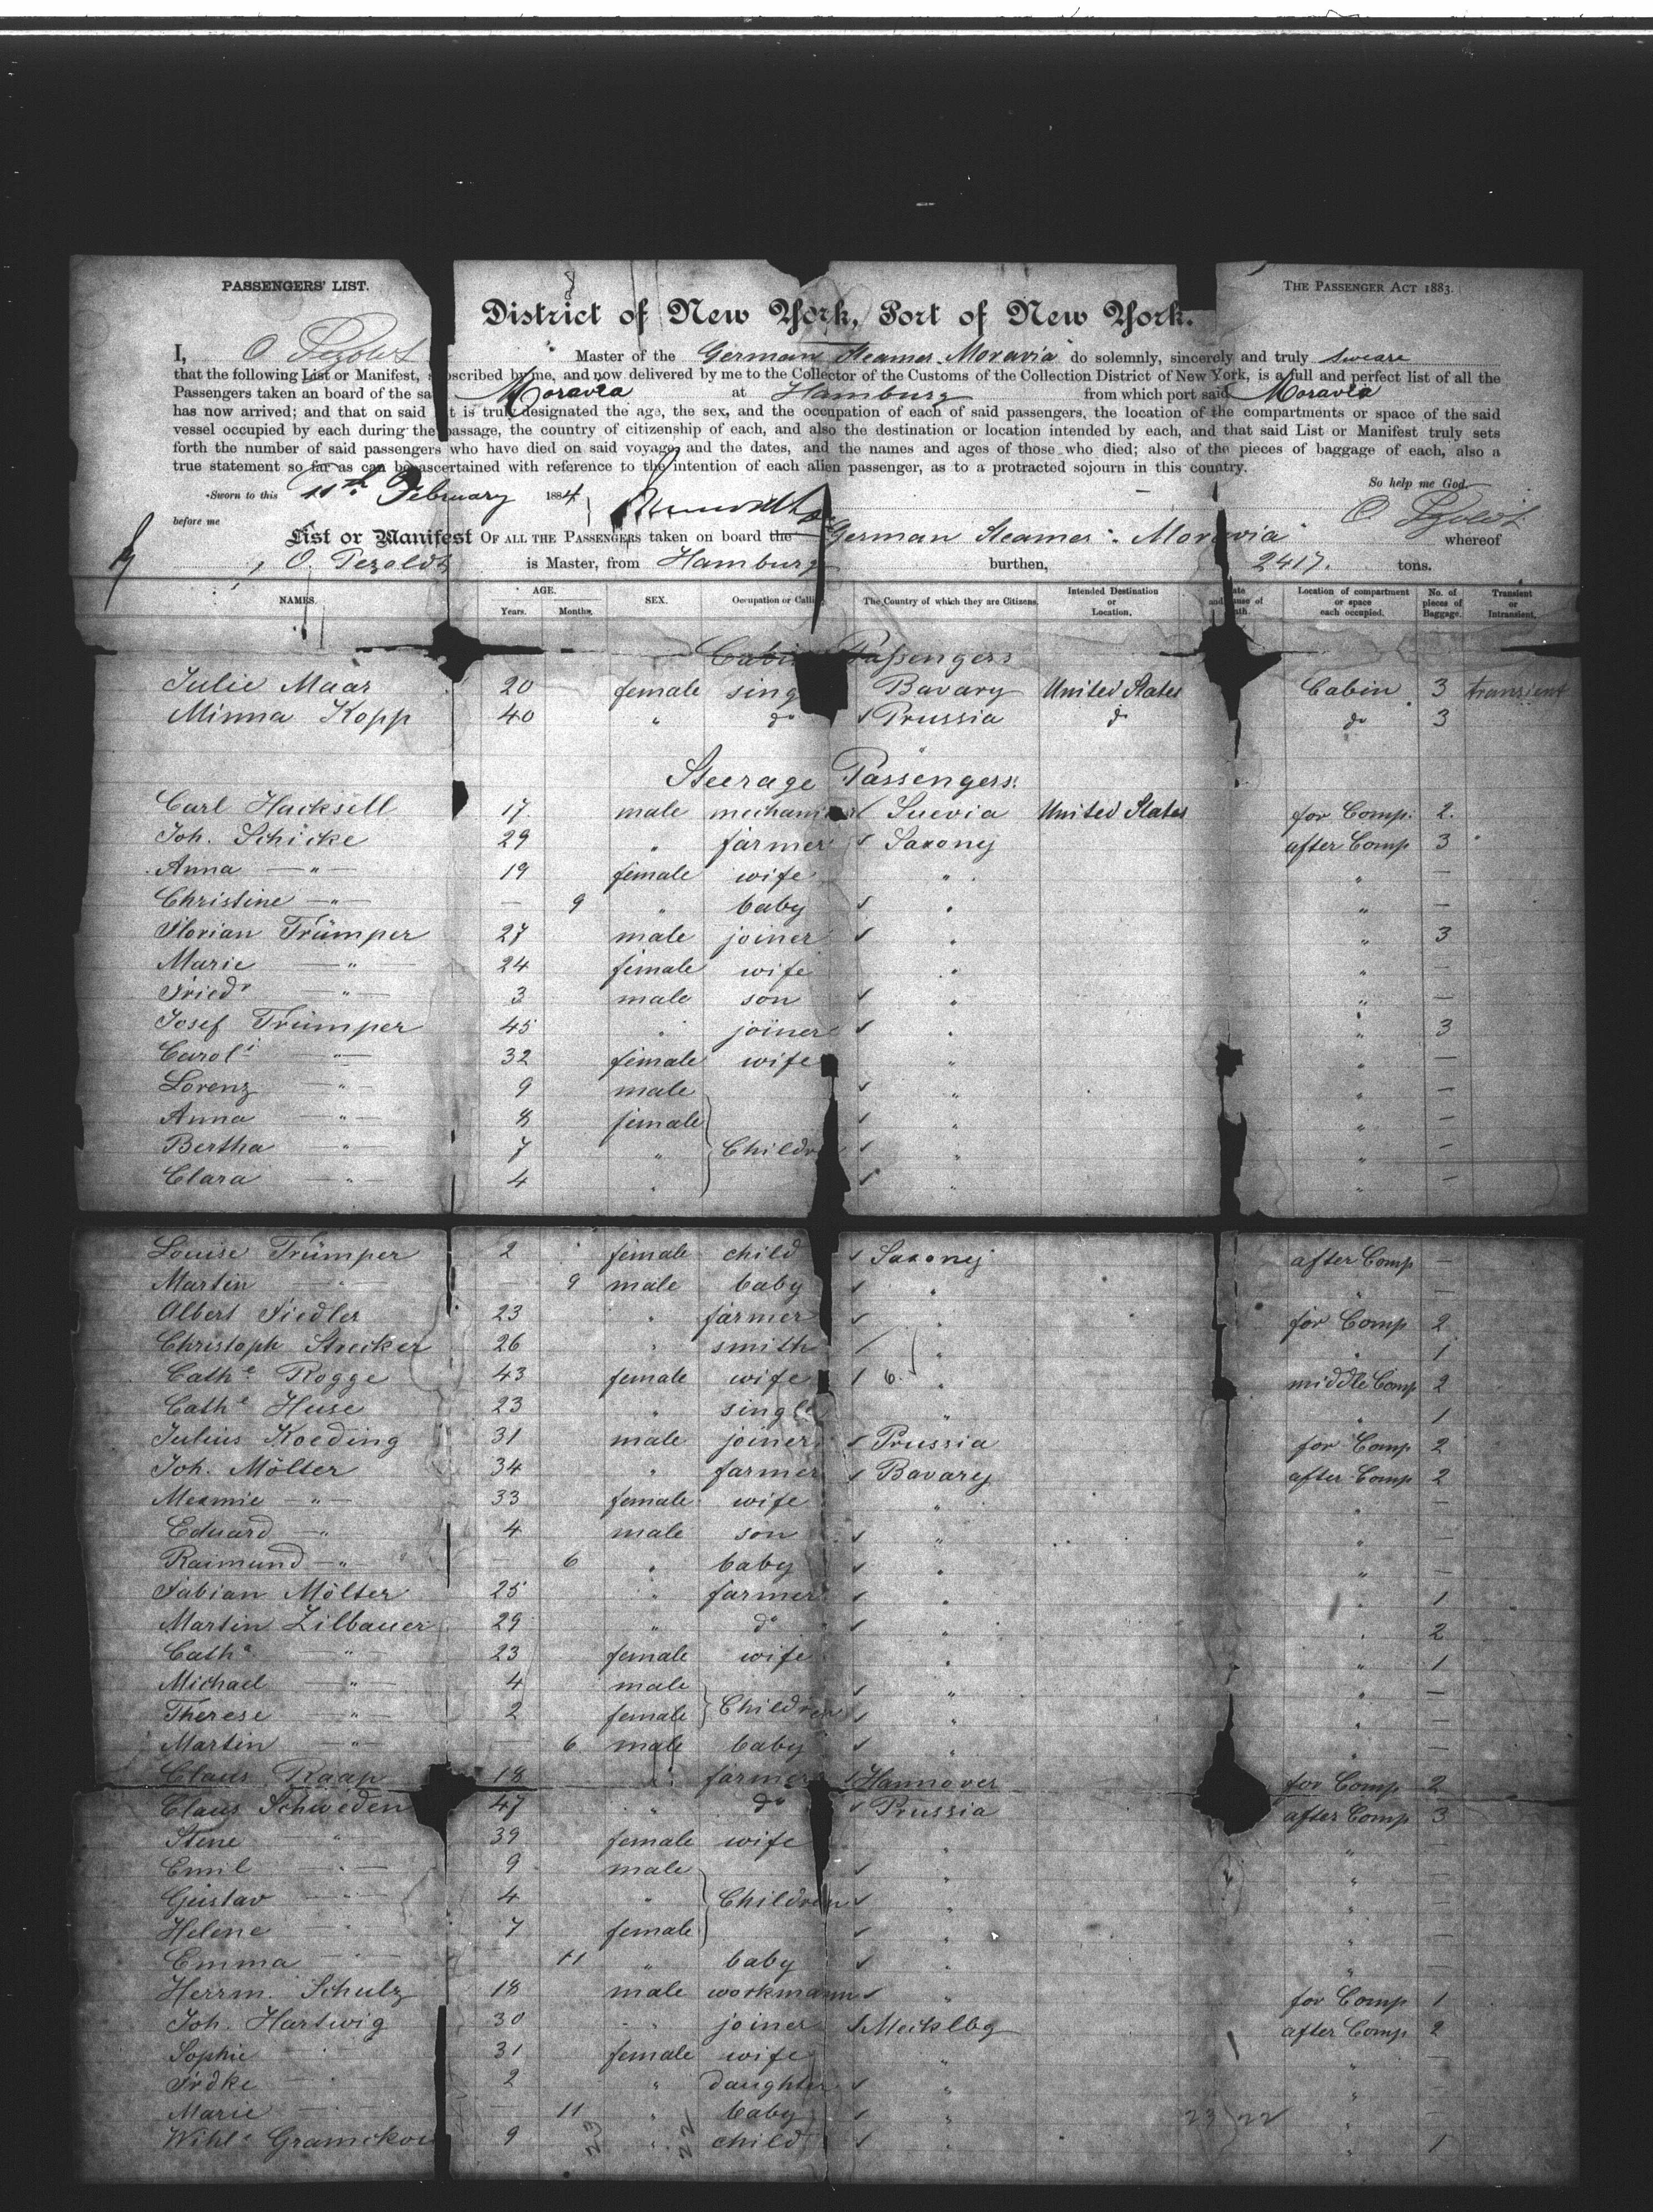 PASSENGERS' LIST.
THE PASSENGER ACT 1883.
8
District of New York, Port of New York.
I, O Pezoldt Master of the German Steamer Moravia do solemnly, sincerely and truly sweare
that the following List or Manifest, subscribed by me, and now delivered by me to the Collector of the Customs of the Collection District of New York, is a full and perfect list of all the
Passengers taken an board of the sa Moravia at Hamburg from which port said Moravia
has now arrived; and that on said t is truly designated the age, the sex, and the occupation of each of said passengers, the location of the compartments or space of the said
vessel occupied by each during the passage, the country of citizenship of each, and also the destination or location intended by each, and that said List or Manifest truly sets
forth the number of said passengers who have died on said voyage, and the dates, and the names and ages of those who died; also of the pieces of baggage of each, also a
true statement so far as can be ascertained with reference to the intention of each alien passenger, as to a protracted sojourn in this country.
Sworn to this 11th February 1884 So help me God.
before me O Pezoldt
List or Manifest OF ALL THE PASSENGERS taken on board the German Steamer "Moravia" whereof
O. Pezoldt is Master, from Hamburg burthen, 2417. tons.
NAMES. AGE. Years. Months. SEX. Occupation or Calling The Country of which they are Citizens. Intended Destination or Location. ate and ause of ath. Location of compartment or space each occupied. No. of pieces of Baggage. Transient or Intransient.
Cabin Passengers
Julie Maar 20 female sing Bavary United States Cabin 3 transient
Minna Kopp 40 " do Prussia do do 3
Steerage Passengers.
Carl Hacksell 17 male mechanic Suevia United States for Comp. 2.
Joh. Schicke 29 " farmer Saxony after Comp 3
Anna —"— 19 female wife " " —
Christine —"— — 9 " baby " " —
Florian Trümper 27 male joiner " " 3
Marie —"— 24 female wife " " —
Friedr —"— 3 male son " " —
Josef Trümper 45 " joiner " " 3
Carol —"— 32 female wife " " —
Lorenz —"— 9 male " " —
Anna —"— 8 female " " —
Bertha —"— 7 " Childr " " —
Clara —"— 4 " " " —
Louise Trümper 2 female child Saxony after Comp —
Martin —"— — 9 male baby " " —
Albert Fiedler 23 " farmer " for Comp 2
Christoph Strecker 26 " smith " " 1
Cathe Rogge 43 female wife 6 " middle Comp 2
Cathe Huse 23 " single " " 1
Julius Koeding 31 male joiner Prussia for Comp 2
Joh. Mölter 34 " farmer Bavary after Comp 2
Mexmie —"— 33 female wife " " —
Eduard —"— 4 male son " " —
Raimund —"— — 6 " baby " " —
Fabian Mölter 25 " farmer " " 1
Martin Zilbauer 29 " do " " 2
Catha —"— 23 female wife " " 1
Michael —"— 4 male " " —
Therese —"— 2 female Children " " —
Martin —"— — 6 male baby " " —
Claus Raap 18 " farmer Hannover for Comp 2
Claus Schweden 47 " do Prussia after Comp 3
Stene —"— 39 female wife " " —
Emil —"— 9 male " " —
Gustav —"— 4 " Children " " —
Helene —"— 7 female " " —
Emma —"— 11 " baby " " —
Herrm. Schulz 18 male workmann " for Comp 1
Joh. Hartwig 30 " joiner Mecklbg after Comp 2
Sophie —"— 31 female wife " " —
Frdke —"— 2 " daughter " " —
Marie —"— — 11 " baby " " —
Wihle Gramckow 9 " child " " 1
23 22 23 22